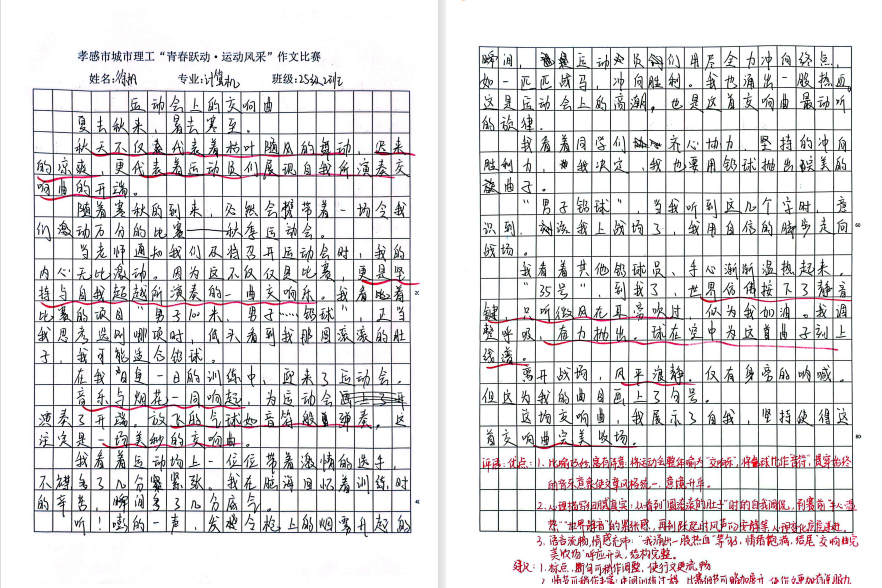 孝感市城市理工“青春跃动·运动风采”作文比赛
姓名:徐帆 专业:计算机 班级:25级2班
运动会上的交响曲
夏去秋来,暑去寒至。
秋天不仅仅代表着枫叶随风的舞动,迟来
的凉爽,更代表着运动员们展现自我所演奏交
响曲的开端。
随着寒秋的到来,必然会携带着一场令我
们激动万分的比赛——秋季运动会。
当老师通知我们及将召开运动会时,我的
内心无比激动。因为这不仅仅是比赛,更是坚
持与自我超越所演奏的一曲交响乐。我看着
比赛的项目“男子100米,男子……铅球”,正当
我思考选则哪项时,低头看到我那圆滚滚的肚
子,我可能适合铅球。
在我日复一日的训练中,迎来了运动会。
音乐与烟花一同响起,为运动会
演奏了开端。放飞的气球如音符般弹奏。这
注定是一场美妙的交响曲。
我看着运动场上一位位带着激情的选手,
不禁多了几分紧张。我在脑海回忆着训练时
的辛苦,瞬间多了几分底气。
听!嘭的一声,发令枪上的烟雾升起的
瞬间,运动员们用尽全力冲向终点,
如一匹匹战马,冲向胜利。我热涌出一股热血。
这是运动会上的高潮,也是这首交响曲最动听
的旋律。
我看着同学们齐心协力,坚持的冲向
胜利,我决定,我也要用铅球抛出最美的
旋曲子。
“男子铅球”当我听到这几个字时,意
识到,该我上战场了,我用自信的脚步走向
战场。
我看着其他铅球员,手心渐渐温热起来。
“35号”,到我了,世界仿佛按下了静音
键,只听微风在耳旁吹过,似为我加油。我调
整呼吸,奋力抛出。球在空中为这首曲子刻上
线谱。
离开战场,风平浪静。仅有身旁的呐喊。
但这为我的曲目画上了句号。
这场交响曲,我展示了自我,坚持使得这
首交响曲完美收场。
评语:优点:1.比喻巧妙,富有诗意:将运动会整体喻为“交响乐”,将气球比作“音符”,贯穿始终
的音乐意象使文章风格统一、意境开来。
2.心理描写细腻真实:从看到“圆滚滚的肚子”时的自我调侃,到赛前
“世界静音”的紧张感,再到
3.语言流畅,情感充沛:“我涌出一股热血”等句,情绪饱满,结尾“交响曲完
美收场”呼应开头,结构完整。
建议:1.标点、断句可稍作调整,使行文更流畅